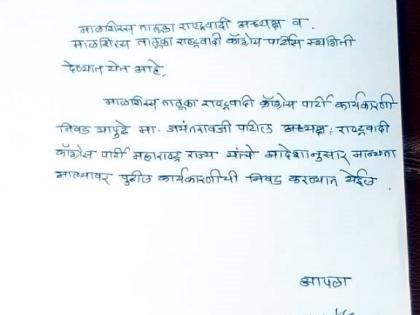 माळशिरस तालुका राष्ट्रवादी अध्यक्ष व.
माळशिरस तालुका राष्ट्रवादी काँग्रेस पार्टीस स्थगिती
देण्यात येत आहे.
माळशिरस तालुका राष्ट्रवादी काँग्रेस पार्टी कार्यकारणी
निवड यापुढे मा. जयंतरावजी पाटील अध्यक्ष, राष्ट्रवादी
काँग्रेस पार्टी महाराष्ट्र राज्य यांचे आदेशानुसार मान्यता
आल्यावर पुढील कार्यकारणीची निवड करण्यात येईल.
आपला